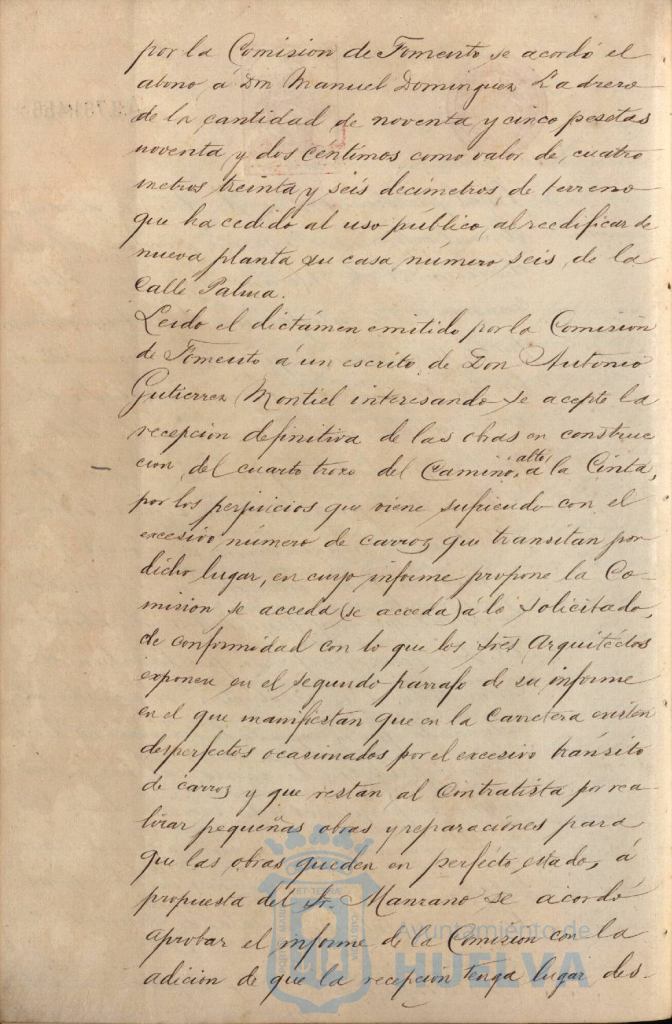 por la Comision de Fomento se acordó el
abono á Don Manuel Dominguez Ladrero
de la cantidad de noventa y cinco pesetas
noventa y dos centimos como valor de cuatro
metros treinta y seis decimetros de terreno
que ha cedido al uso público, al reedificar de
nueva planta su casa número seis de la
Calle Palma.
Leido el dictámen emitido por la Comision
de Fomento á un escrito de Don Antonio
Gutierrez Montiel interesando se acepte la
recepcion definitiva de las obras en construc
cion del cuarto trozo del Camino alto á la Cinta,
por los perjuicios que viene sufriendo con el
excesivo número de carros que transitan por
dicho lugar, en cuyo informe propone la Co-
mision se acceda (se acceda) á lo solicitado,
de conformidad con lo que los tres Arquitectos
exponen en el segundo párrafo de su informe
en el que manifiestan que en la Carretera existen
desperfectos ocasionados por el excesivo tránsito
de carros y que restan al Contratista por rea
lizar pequeñas obras y reparaciones para
que las obras queden en perfecto estado, á
propuesta del Sr. Manzano se acordó
aprobar el informe de la Comision con la
adicion de que la recepcion tenga lugar des-
Ayuntamiento de
HUELVA